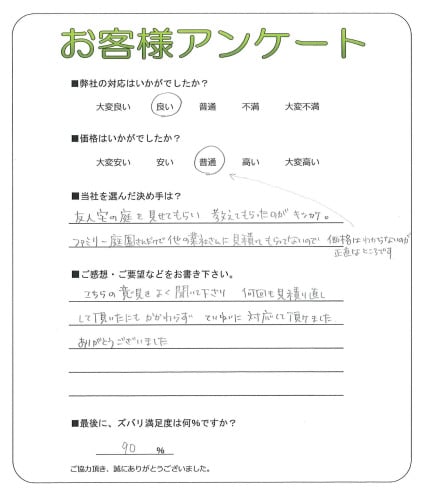 お客様アンケート
■弊社の対応はいかがでしたか？
大変良い 良い 普通 不満 大変不満
■価格はいかがでしたか？
大変安い 安い 普通 高い 大変高い
■当社を選んだ決め手は？
友人宅の庭を見せてもらい 教えてもらったのが キッカケ。
ファミリー庭園さんだけで他の業社さんに見積ってもらってないので 価格はわからないのが
正直なところです
■ご感想・ご要望などをお書き下さい。
こちらの意見をよく聞いて下さり 何回も見積り直し
して頂いたにもかかわらず ていねいに対応して頂けました
ありがとうございました
■最後に、ズバリ満足度は何%ですか？
90 %
ご協力頂き、誠にありがとうございました。